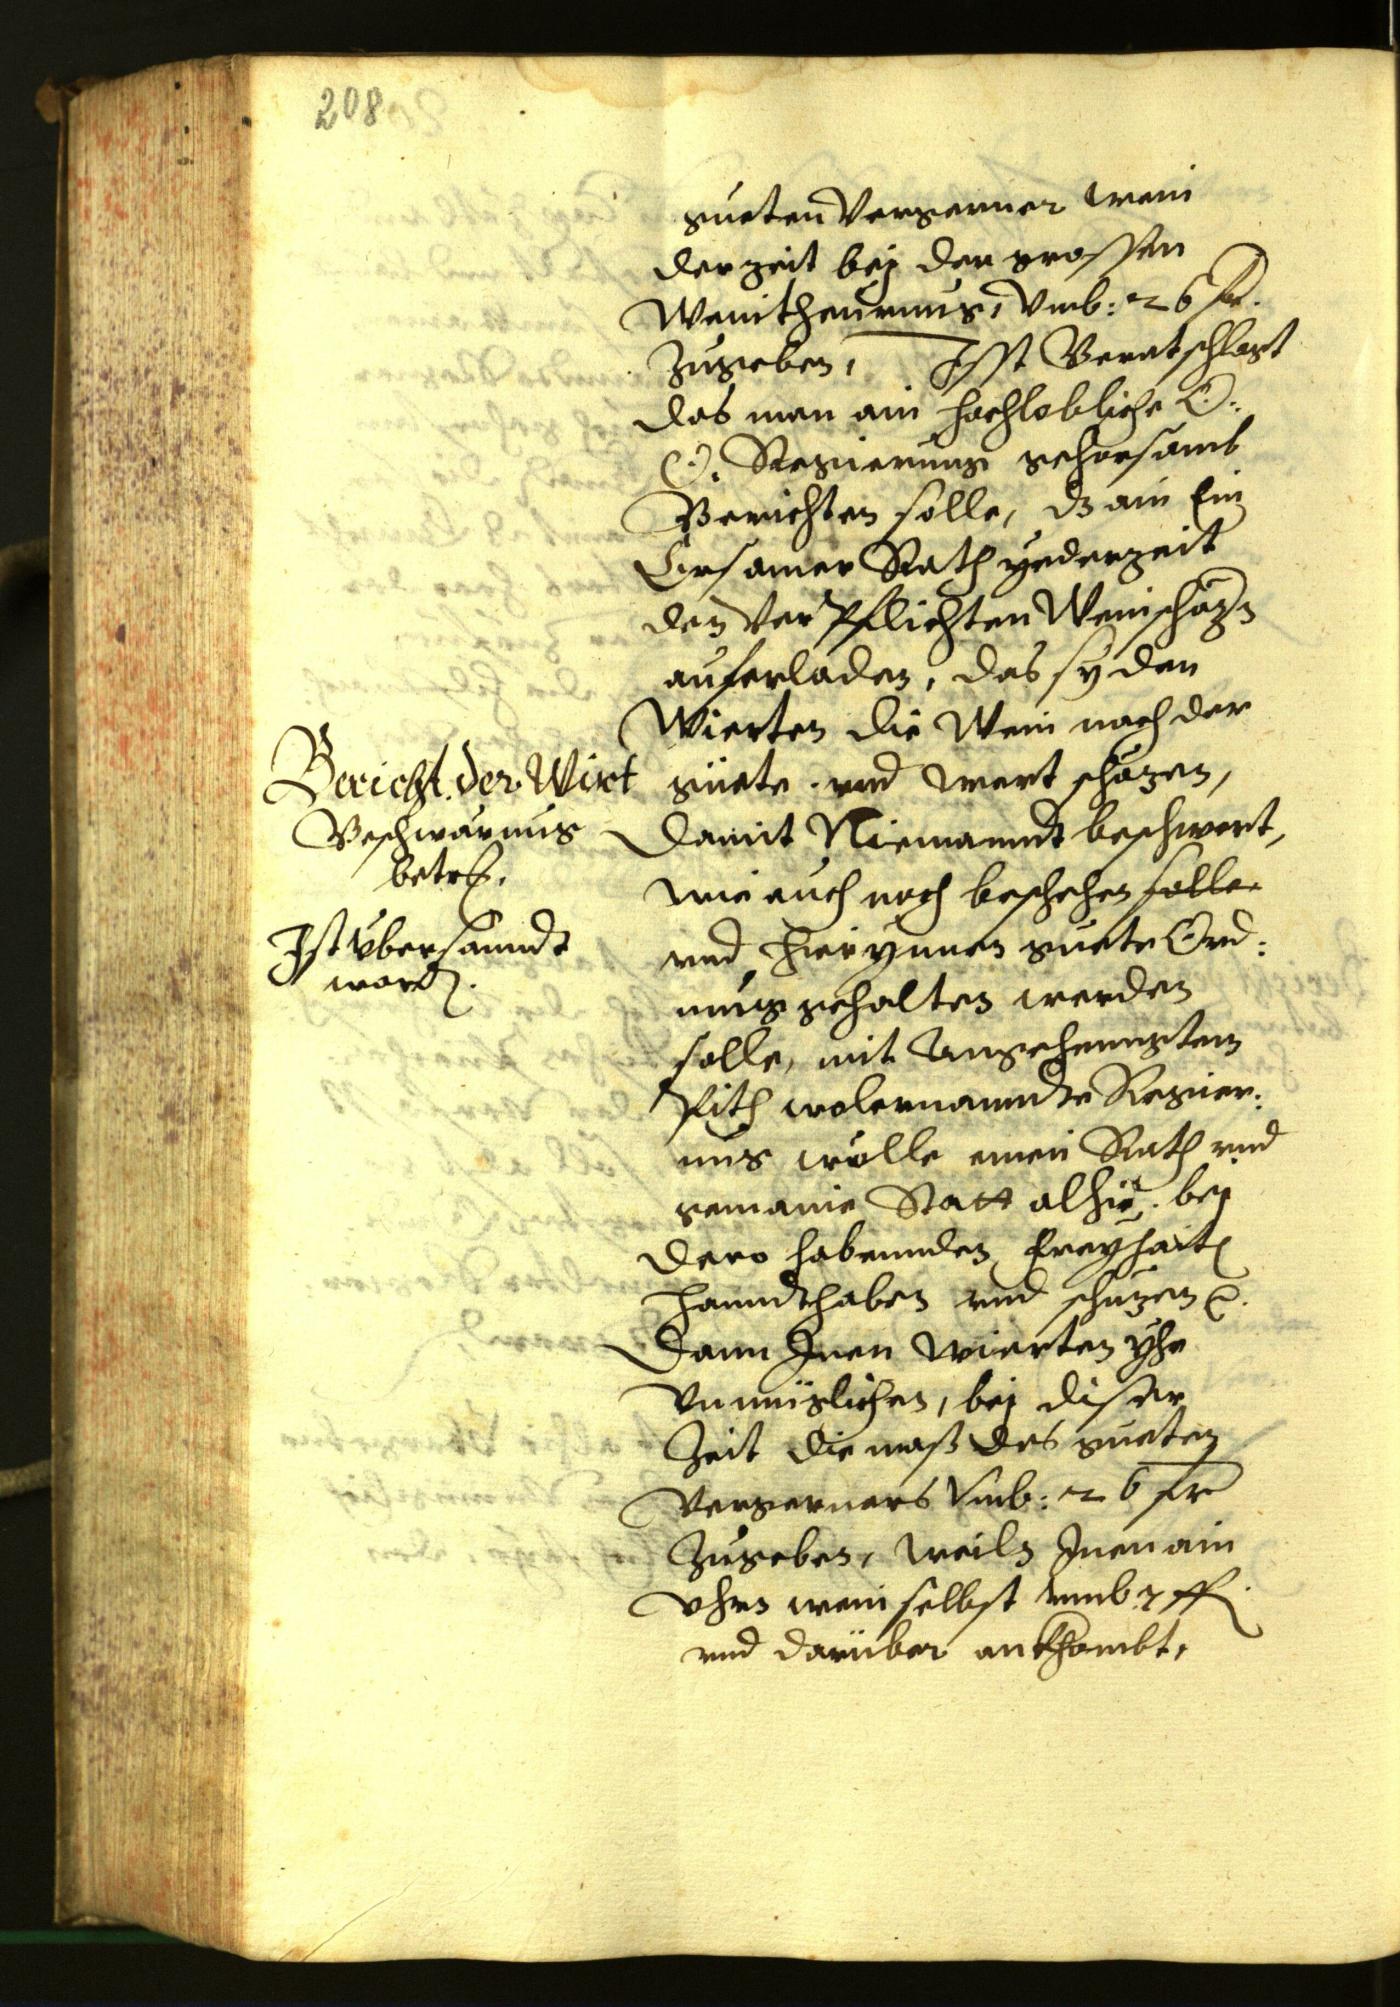 208
gueten Vergerner wein
der zeit bej der grossen
Weintheurung, Vmb: 26 kr.
Zugeben, Ist Beratschlagt
das man ain hochlobliche O:
Ö: Regierung gehorsamb
Berichten solle, dz ain Ein
Ersamer Rath yederzeit
den Verpflichten Weinschäzn
auferladen, das sy den
Wierten die Wein nach der
güete vnd wert schäzen,
damit Niemanndt beschwert,
wie auch noch beschehen solle
vnd hierynnen guete Ord:
nung gehalten werden
solle, mit Angehenngtem
Pith wolernanndte Regier:
ung wölle einen Rath vnd
gemaine Statt alhie. bej
dero habennden Freyhait
hanndthaben vnd schuzen
Dann Inen Wierten yhe
Vnmüglichen, bej diser
Zeit die mass des gueten
Vergerners Vmb: 26 kr
Zugeben, weiln Inen ain
Vhrn wein selbst vmb 7 fl
vnd darüber ankhombt,
Bericht der Wirt
Beschwärnus
betref.
Ist vbersanndt
word.